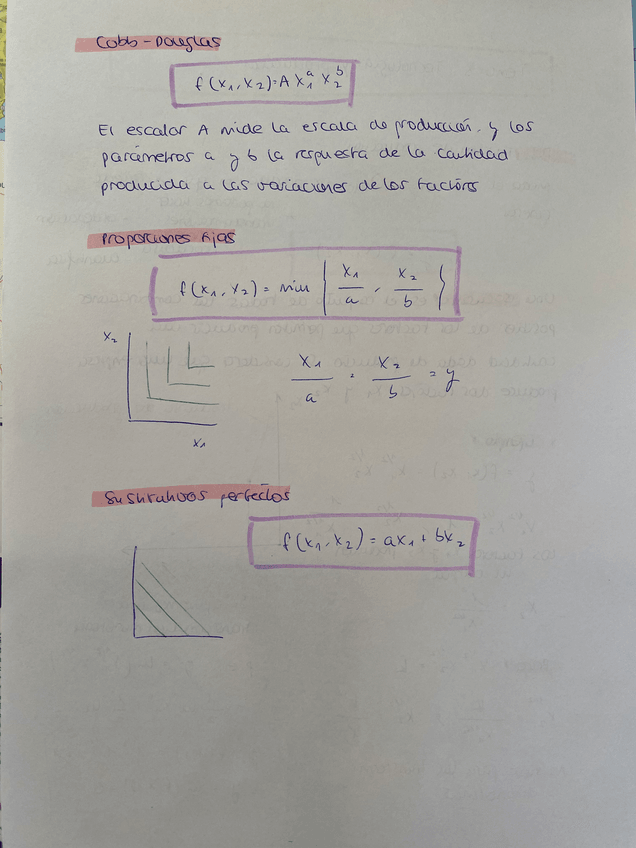 Cobb-Douglas
f(x₁, x₂) = A x₁ᵃ x₂ᵇ
El escalar A mide la escala de producción, y los
parámetros a y b la respuesta de la cantidad
producida a las variaciones de los factores
Proporciones fijas
f(x₁, x₂) = min { x₁/a , x₂/b }
x₂
x₁/a = x₂/b = y
x₁
Sustitutivos perfectos
f(x₁, x₂) = ax₁ + bx₂